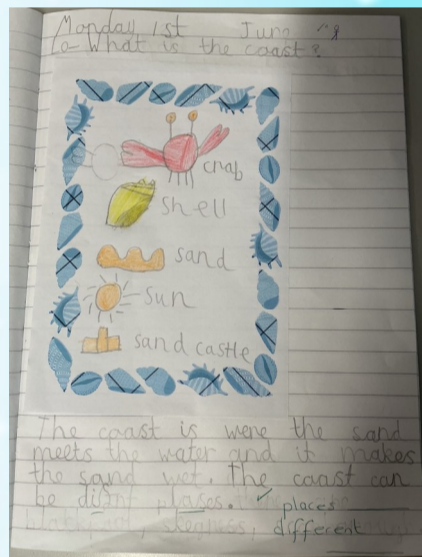 Monday 1st June
What is the coast?
crab
shell
sand
sun
sand castle
The coast is were the sand
meets the water and it makes
the sand wet. The coast can
be plases. places
skegness, different